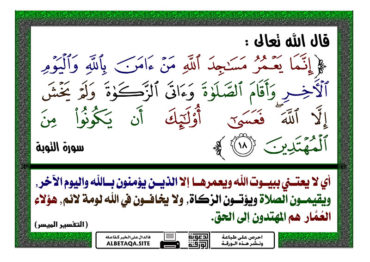 قال الله تعالى :
﴿ إِنَّمَا يَعْمُرُ مَسَٰجِدَ ٱللَّهِ مَنْ ءَامَنَ بِٱللَّهِ وَٱلْيَوْمِ
ٱلْأٓخِرِ وَأَقَامَ ٱلصَّلَوٰةَ وَءَاتَى ٱلزَّكَوٰةَ وَلَمْ يَخْشَ
إِلَّا ٱللَّهَ ۖ فَعَسَىٰٓ أُو۟لَٰٓئِكَ أَن يَكُونُوا۟ مِنَ
ٱلْمُهْتَدِينَ ١٨ ﴾ سورة التوبة
أي لا يعتني ببيوت الله ويعمرها إلا الذين يؤمنون بالله واليوم الآخر،
ويقيمون الصلاة ويؤتون الزكاة، ولا يخافون في الله لومة لائم، هؤلاء
العُمَّار هم المهتدون إلى الحق.
(التفسير الميسر)
احرص على طباعة
ونشر هذه الورقة
فالدال على الخير كفاعله
ALBETAQA.SITE